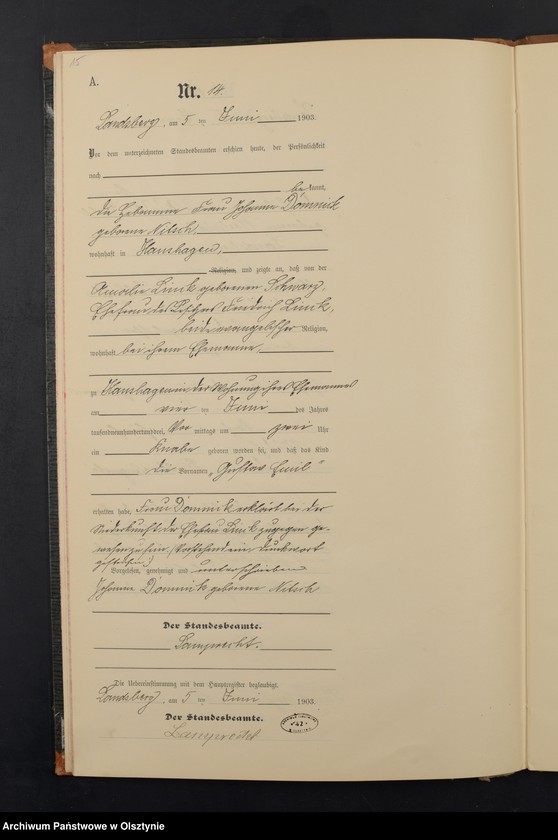 15
A.
Nr. 14.
Landsberg, am 5 ten Juni 1903.
Vor dem unterzeichneten Standesbeamten erschien heute, der Persönlichkeit
nach
be kannt,
die Hebamme Frau Johanna Domnick
geborne Nitsch,
wohnhaft in Hanshagen,
Religion, und zeigte an, daß von der
Amalie Linck geborenen Schwarz,
Ehefrau des Besitzers Friedrich Linck,
beide evangelischer Religion,
wohnhaft bei ihrem Ehemanne,
zu Hanshagen in der Wohnung ihres Ehemannes
am vier ten Juni des Jahres
tausendneunhundertunddrei, Vor mittags um zwei Uhr
ein Knabe geboren worden sei, und daß das Kind
die Vornamen „Gustav Emil"
erhalten habe. Frau Domnick erklärt bei der
Niederkunft der Ehefrau Linck zugegen ge-
wesen zu sein. (Vorstehend ein Druckwort
gestrichen)
Vorgelesen, genehmigt und unterschrieben
Johanna Domnick geborene Nitsch
Der Standesbeamte.
Lamprecht.
Die Uebereinstimmung mit dem Hauptregister beglaubigt.
Landsberg, am 5 ten Juni 1903.
Der Standesbeamte.
Lamprecht
Archiwum Państwowe w Olsztynie